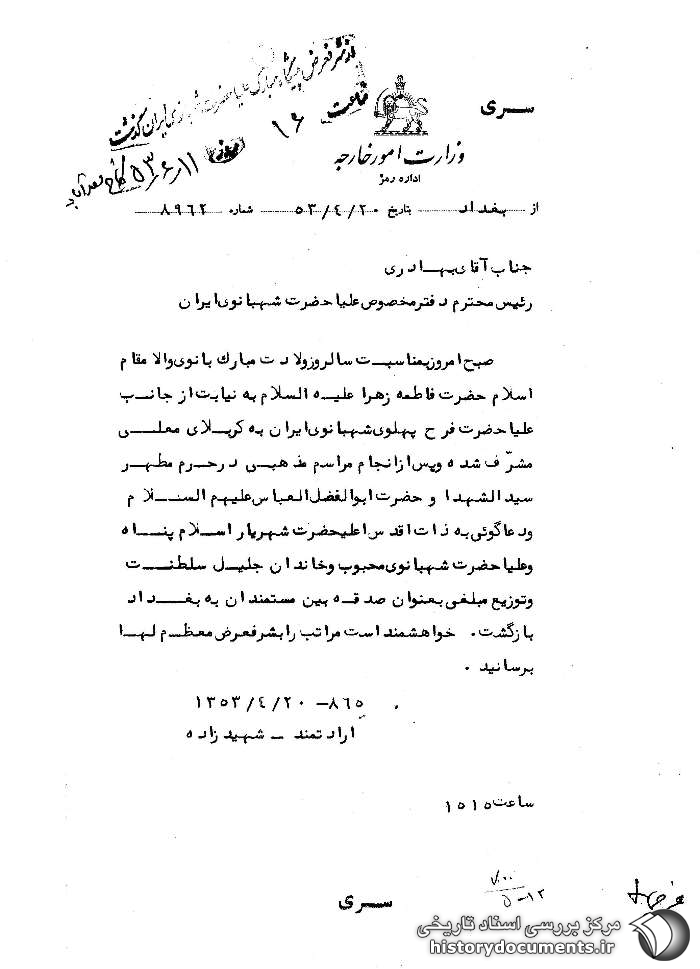 از شرفعرض پیشگاه مبارک علیاحضرت شهبانوی ایران گذشت
ساعت ۱۶
۵۳/۶/۱۱ کاخ سعدآباد
سری
وزارت امور خارجه
اداره رمز
از بغداد بتاریخ ۵۳/۴/۲۰ شماره ۸۹۶۲
جناب آقای بهادری
رئیس محترم دفتر مخصوص علیاحضرت شهبانوی ایران
صبح امروز بمناسبت سالروز ولادت مبارک بانوی والا مقام
اسلام حضرت فاطمه زهرا علیه السلام به نیابت از جانب
علیاحضرت فرح پهلوی شهبانوی ایران به کربلای معلی
مشرّف شده و پس از انجام مراسم مذهبی در حرم مطهر
سید الشهدا و حضرت ابوالفضل العباس علیهم السلام
و دعاگوئی به ذات اقدس اعلیحضرت شهریار اسلام پناه
و علیاحضرت شهبانوی محبوب و خاندان جلیل سلطنت
و توزیع مبلغی بعنوان صدقه بین مستمندان به بغداد
بازگشت. خواهشمند است مراتب را بشرفعرض معظم لها
برسانید .
۸۶۵ – ۱۳۵۳/۴/۲۰
ارادتمند – شهیدزاده
ساعت ۱۵۱۵
۷۰۰
۵-۱۲
سری
مرکز بررسی اسناد تاریخی
historydocuments.ir